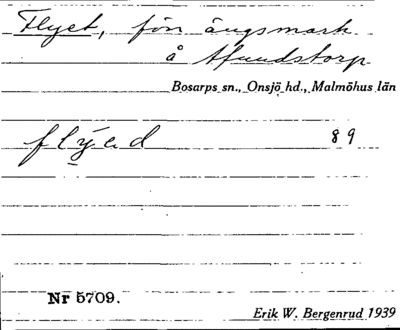 Flyet, förr ängsmark
å Afundstorp
Bosarps sn., Onsjö hd., Malmöhus län
flýəd 89
Nr 5709.
Erik W. Bergenrud 1939